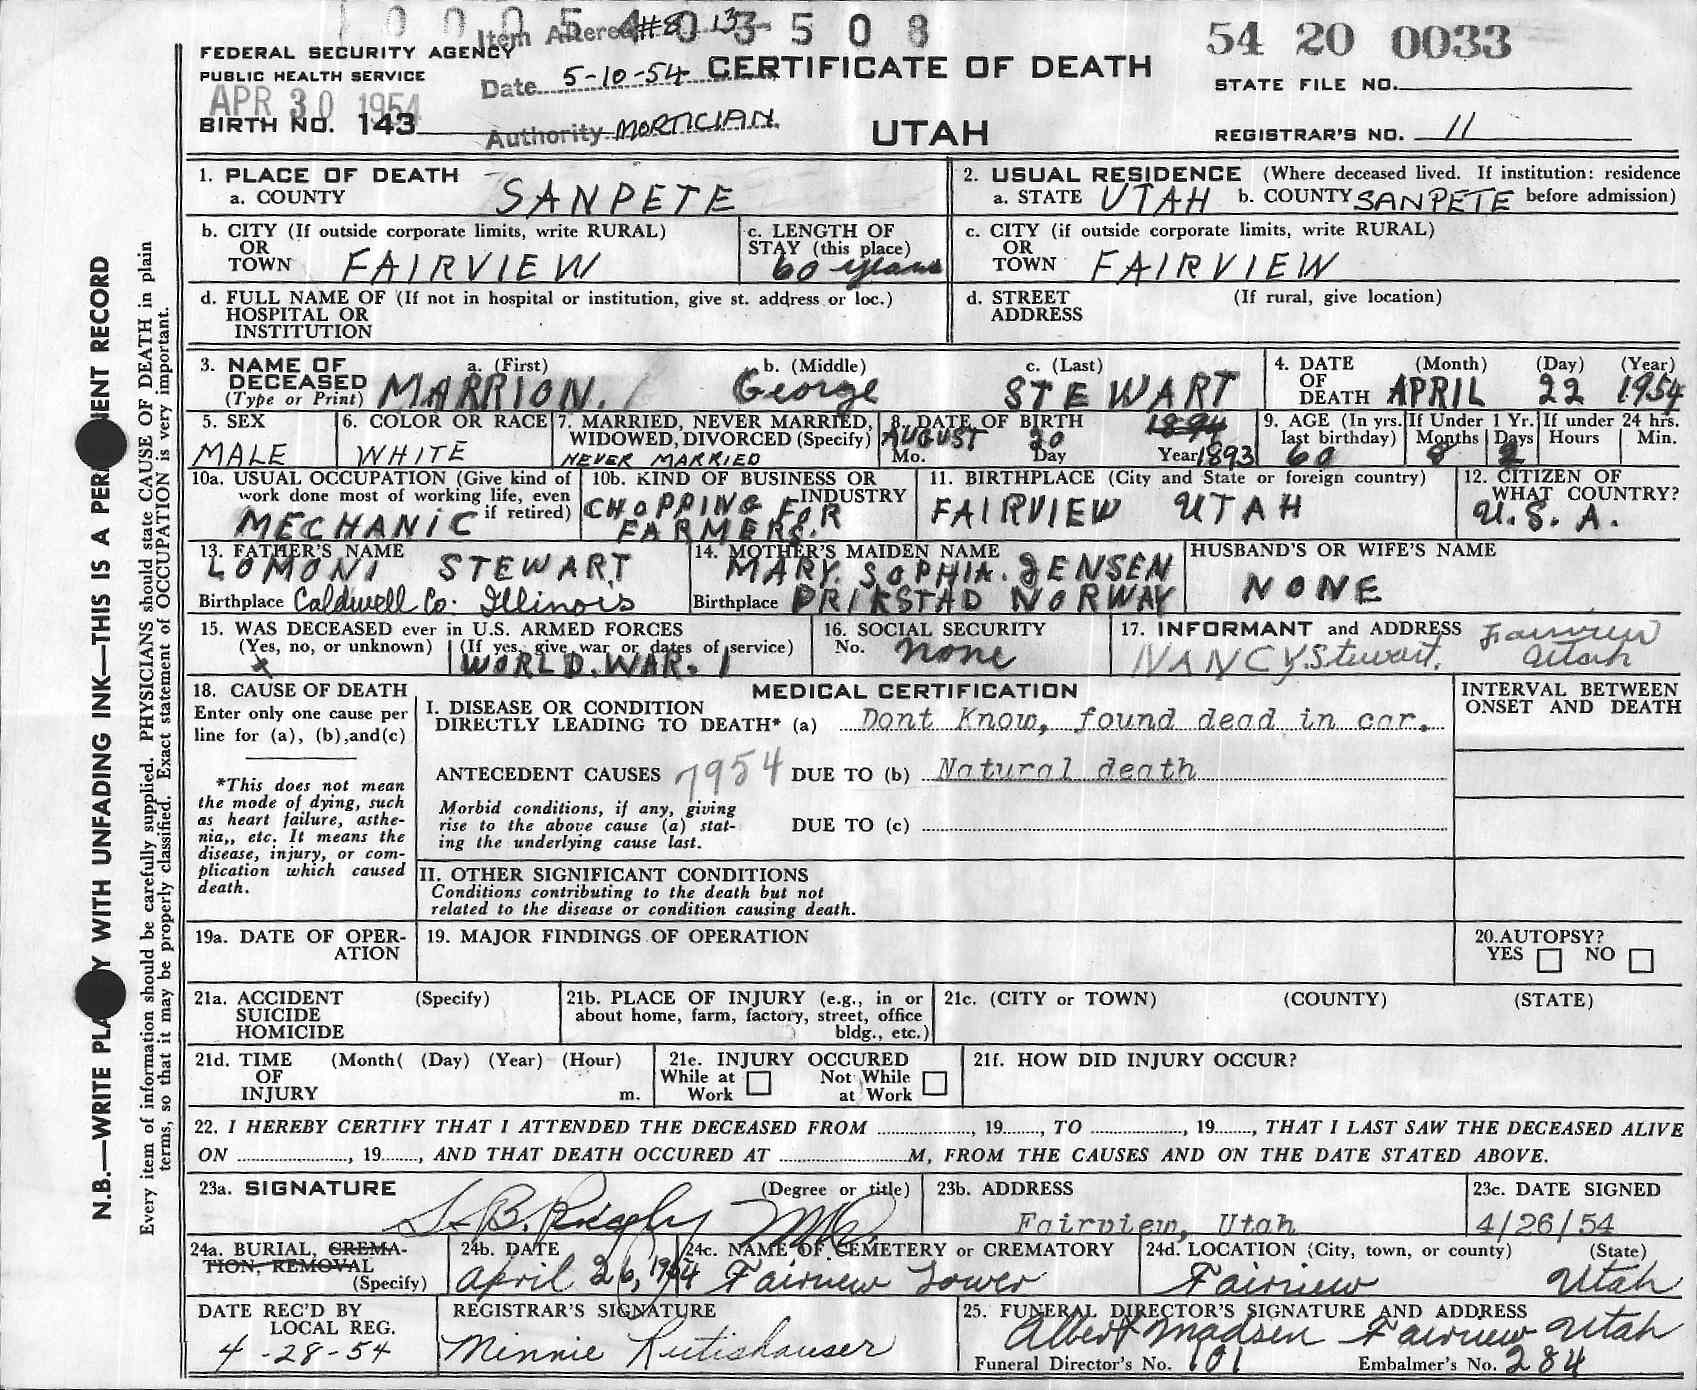 1 0 0 5 4 0 3 5 0 8
Item Altered #8 13
54 20 0033
FEDERAL SECURITY AGENCY
PUBLIC HEALTH SERVICE
Date 5-10-54
CERTIFICATE OF DEATH
STATE FILE NO.
APR 30 1954
BIRTH NO. 143
Authority MORTICIAN
UTAH
REGISTRAR'S NO. 11
1. PLACE OF DEATH
a. COUNTY SANPETE
2. USUAL RESIDENCE (Where deceased lived. If institution: residence
a. STATE UTAH b. COUNTY SANPETE before admission)
b. CITY (If outside corporate limits, write RURAL)
OR
TOWN FAIRVIEW
c. LENGTH OF
STAY (this place)
60 years
c. CITY (if outside corporate limits, write RURAL)
OR
TOWN FAIRVIEW
d. FULL NAME OF (If not in hospital or institution, give st. address or loc.)
HOSPITAL OR
INSTITUTION
d. STREET (If rural, give location)
ADDRESS
3. NAME OF
DECEASED
(Type or Print)
a. (First) b. (Middle) c. (Last)
MARRION. George STEWART
4. DATE (Month) (Day) (Year)
OF
DEATH APRIL 22 1954
5. SEX
MALE
6. COLOR OR RACE
WHITE
7. MARRIED, NEVER MARRIED,
WIDOWED, DIVORCED (Specify)
NEVER MARRIED
8. DATE OF BIRTH 1894
AUGUST 20
Mo. Day Year 1893
9. AGE (In yrs.
last birthday)
60
If Under 1 Yr.
Months Days
8 2
If under 24 hrs.
Hours Min.
10a. USUAL OCCUPATION (Give kind of
work done most of working life, even
if retired)
MECHANIC
10b. KIND OF BUSINESS OR
INDUSTRY
CHOPPING FOR
FARMERS.
11. BIRTHPLACE (City and State or foreign country)
FAIRVIEW UTAH
12. CITIZEN OF
WHAT COUNTRY?
U.S.A.
13. FATHER'S NAME
LOMONI STEWART
Birthplace Caldwell Co. Illinois
14. MOTHER'S MAIDEN NAME
MARY. SOPHIA. JENSEN
Birthplace PRIKSTAD NORWAY
HUSBAND'S OR WIFE'S NAME
NONE
15. WAS DECEASED ever in U.S. ARMED FORCES
(Yes, no, or unknown) (If yes, give war or dates of service)
x WORLD. WAR. 1
16. SOCIAL SECURITY
No. none
17. INFORMANT and ADDRESS Fairview
NANCY. Stewart. Utah
18. CAUSE OF DEATH
Enter only one cause per
line for (a), (b),and(c)
*This does not mean
the mode of dying, such
as heart failure, asthe-
nia,, etc. It means the
disease, injury, or com-
plication which caused
death.
MEDICAL CERTIFICATION
I. DISEASE OR CONDITION
DIRECTLY LEADING TO DEATH* (a) Dont Know, found dead in car.
ANTECEDENT CAUSES 7954 DUE TO (b) Natural death
Morbid conditions, if any, giving
rise to the above cause (a) stat-
ing the underlying cause last.
DUE TO (c)
INTERVAL BETWEEN
ONSET AND DEATH
II. OTHER SIGNIFICANT CONDITIONS
Conditions contributing to the death but not
related to the disease or condition causing death.
19a. DATE OF OPER-
ATION
19. MAJOR FINDINGS OF OPERATION
20. AUTOPSY?
YES NO
21a. ACCIDENT (Specify)
SUICIDE
HOMICIDE
21b. PLACE OF INJURY (e.g., in or
about home, farm, factory, street, office
bldg., etc.)
21c. (CITY or TOWN) (COUNTY) (STATE)
21d. TIME (Month( (Day) (Year) (Hour)
OF
INJURY m.
21e. INJURY OCCURED
While at Work Not While at Work
21f. HOW DID INJURY OCCUR?
22. I HEREBY CERTIFY THAT I ATTENDED THE DECEASED FROM ..............., 19......., TO ..............., 19......., THAT I LAST SAW THE DECEASED ALIVE
ON ..............., 19......., AND THAT DEATH OCCURED AT ...............M, FROM THE CAUSES AND ON THE DATE STATED ABOVE.
23a. SIGNATURE (Degree or title)
B. Rigby MD.
23b. ADDRESS
Fairview, Utah
23c. DATE SIGNED
4/26/54
24a. BURIAL, CREMA-
TION, REMOVAL
(Specify)
24b. DATE
April 26, 1954
24c. NAME OF CEMETERY or CREMATORY
Fairview Lower
24d. LOCATION (City, town, or county) (State)
Fairview Utah
DATE REC'D BY
LOCAL REG.
4-28-54
REGISTRAR'S SIGNATURE
Minnie Rutishauser
25. FUNERAL DIRECTOR'S SIGNATURE AND ADDRESS
Albert Madsen Fairview Utah
Funeral Director's No. 101 Embalmer's No. 284
N.B.—WRITE PLA Y WITH UNFADING INK—THIS IS A PER ENT RECORD
Every item of information should be carefully supplied. PHYSICIANS should state CAUSE OF DEATH in plain
terms, so that it may be properly classified. Exact statement of OCCUPATION is very important.